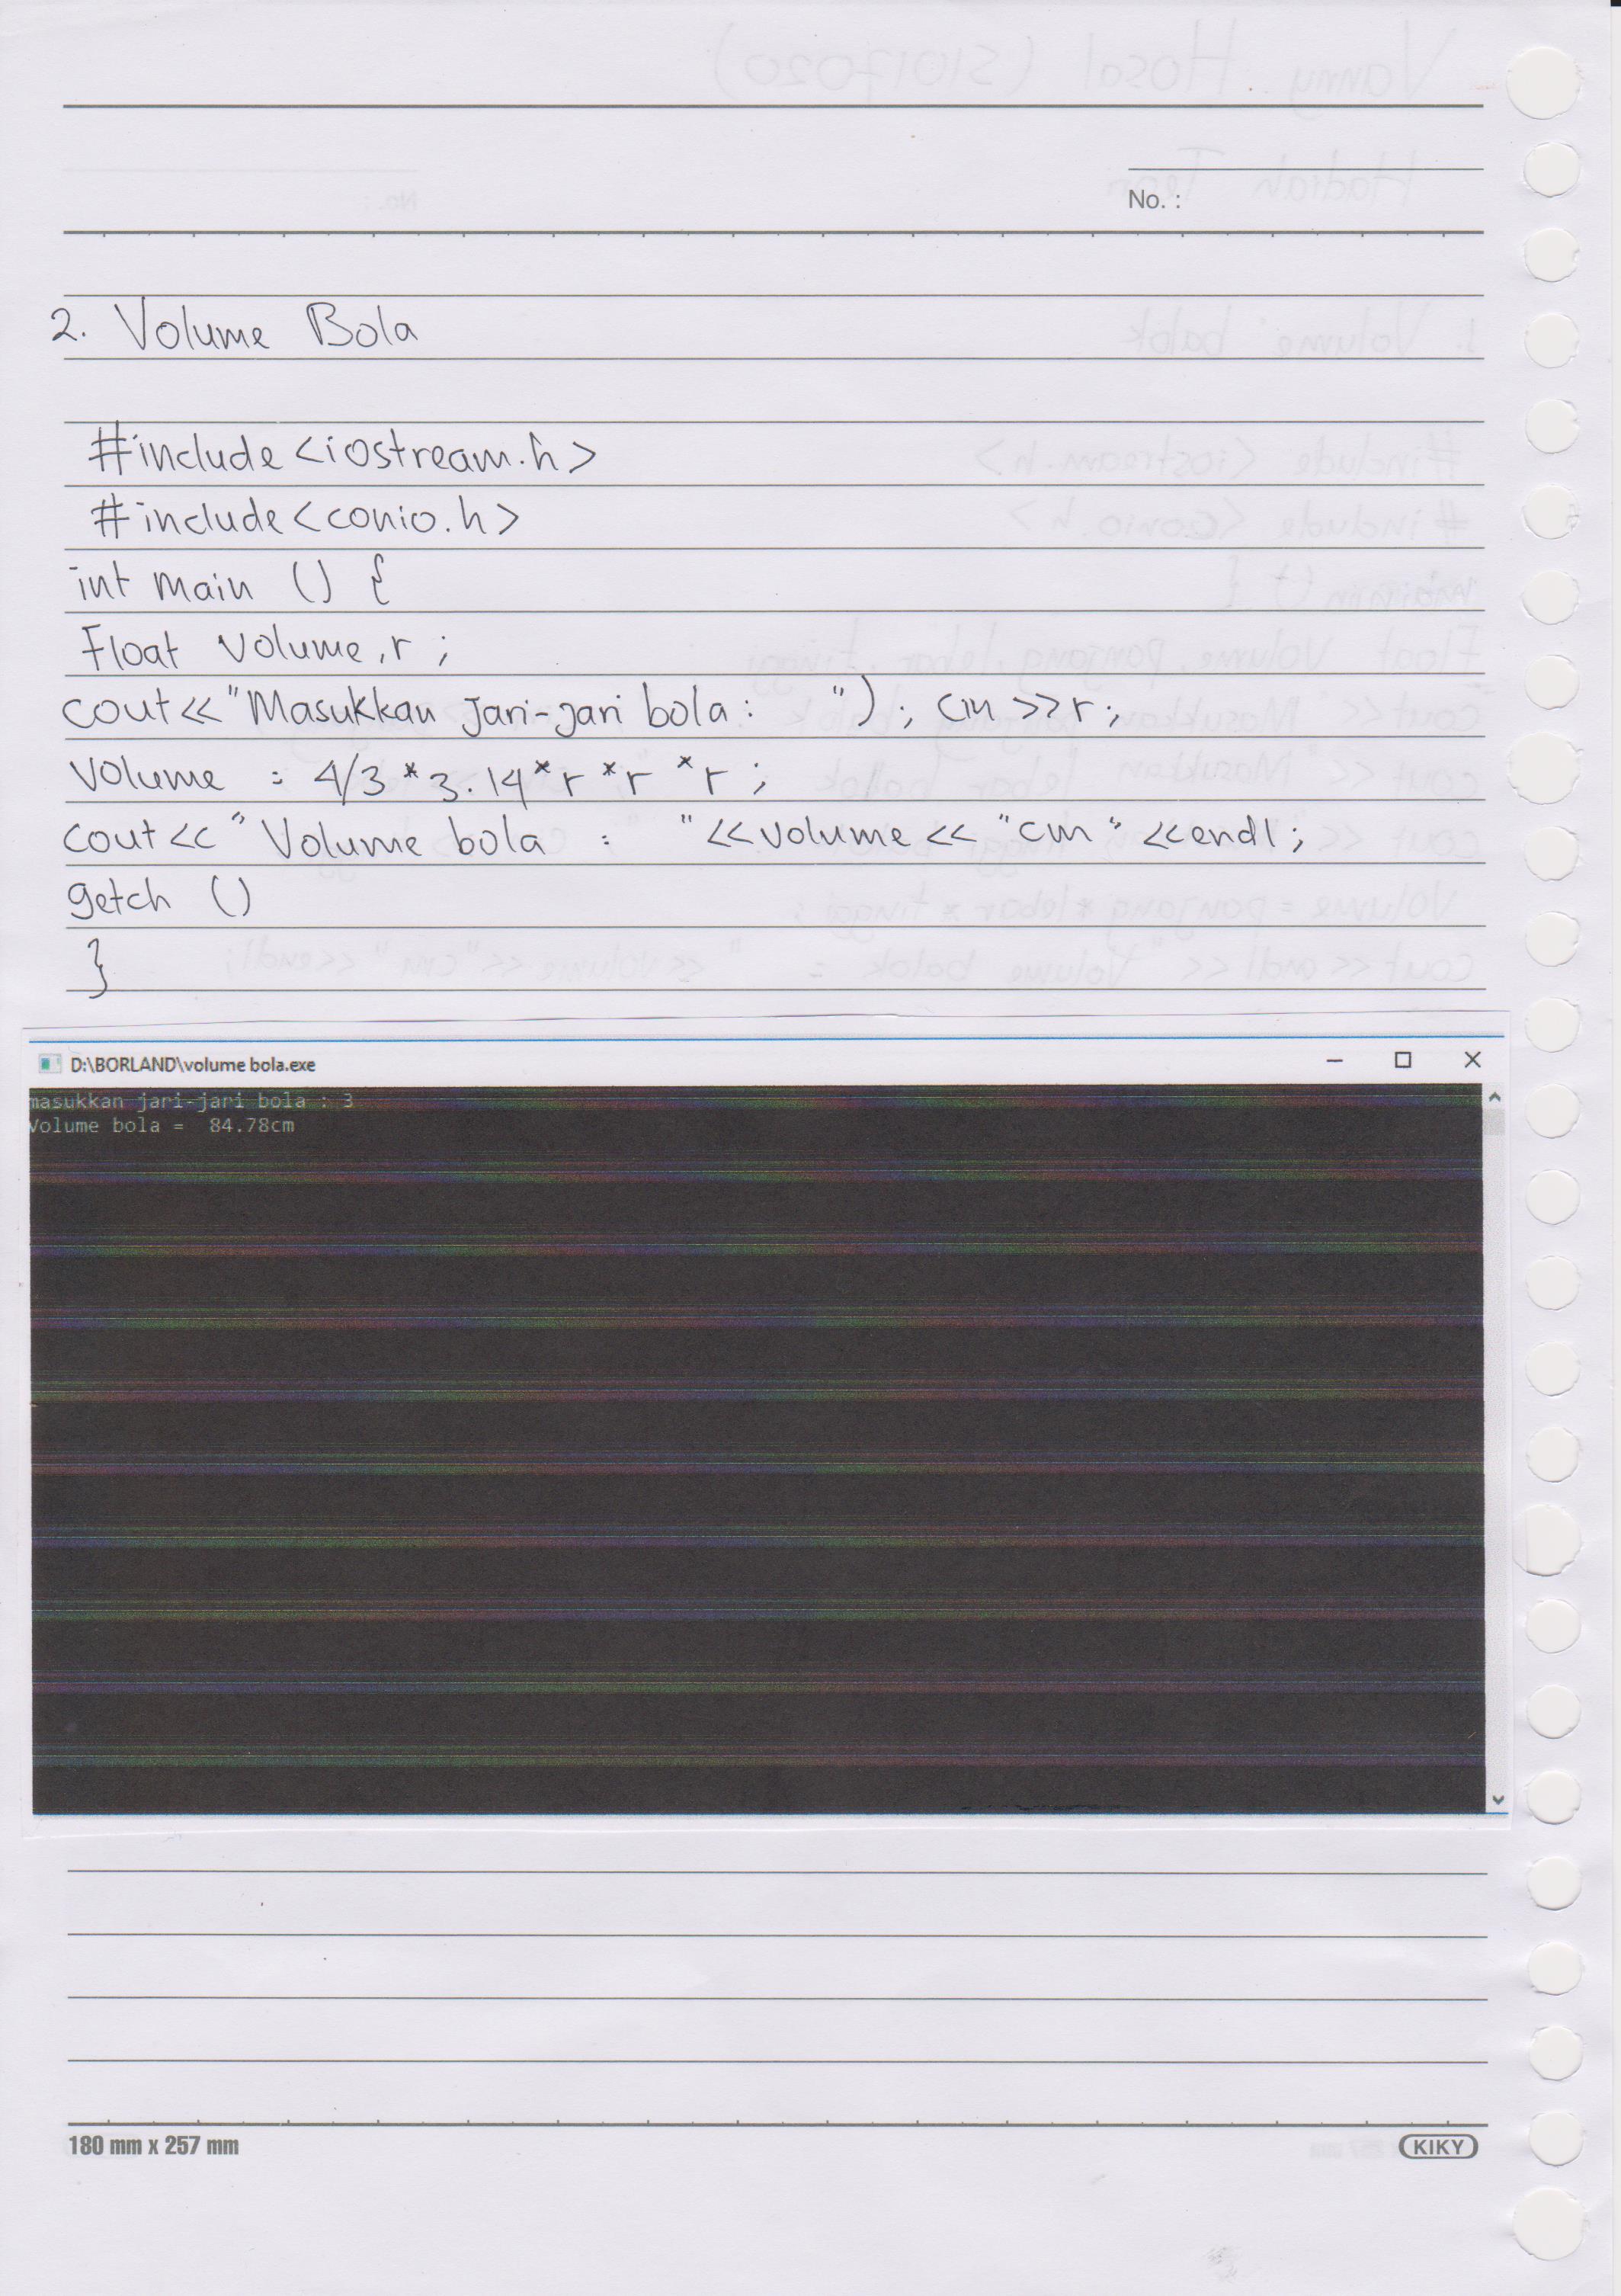 No. :
2. Volume Bola
#include <iostream.h>
#include <conio.h>
int main () {
Float volume, r ;
cout << "Masukkan Jari-jari bola : "); cin >> r ;
Volume : 4/3 * 3.14 * r * r * r ;
cout << " Volume bola : " << volume << "cm" << endl ;
getch ()
}
D:\BORLAND\volume bola.exe
masukkan jari-jari bola : 3
Volume bola = 84.78cm
180 mm x 257 mm
KIKY